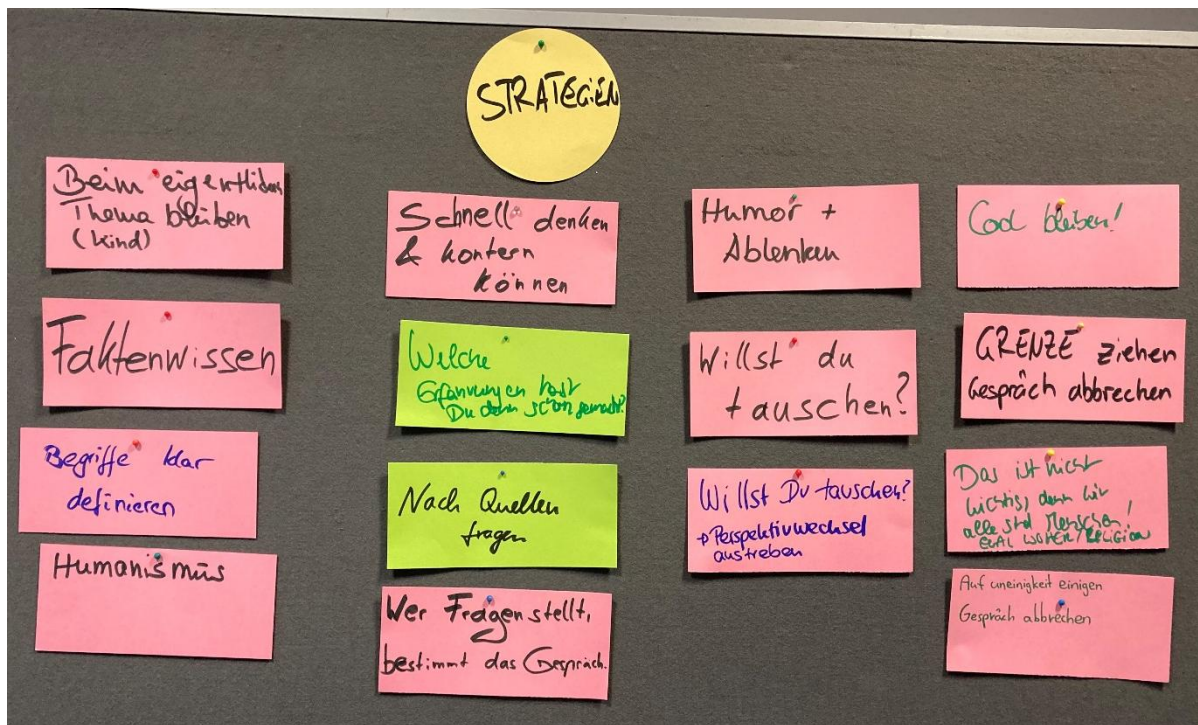 STRATEGIEN
Beim eigentlichen
Thema bleiben
(Kind)
Faktenwissen
Begriffe klar
definieren
Humanismus
Schnell denken
& kontern
können
Welche
Erfahrungen hast
Du denn schon gemacht?
Nach Quellen
fragen
Wer Fragen stellt,
bestimmt das Gespräch.
Humor +
Ablenken
Willst du
tauschen?
Willst Du tauschen?
→ Perspektivwechsel
anstreben
Cool bleiben!
GRENZE ziehen
Gespräch abbrechen
Das ist nicht
wichtig, denn wir
alle sind Menschen!
EGAL WOHER/RELIGION
Auf uneinigkeit einigen
Gespräch abbrechen